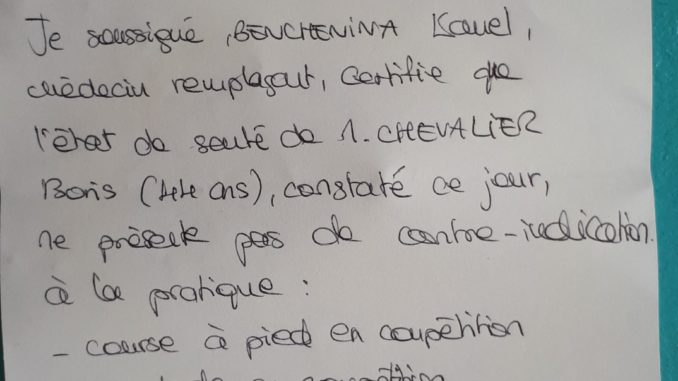 Je soussigné, BENCHENINA Kamel,
médecin remplaçant, certifie que
l'état de santé de M. CHEVALIER
Boris (44 ans), constaté ce jour,
ne présente pas de contre-indication.
à la pratique :
- course à pied en compétition